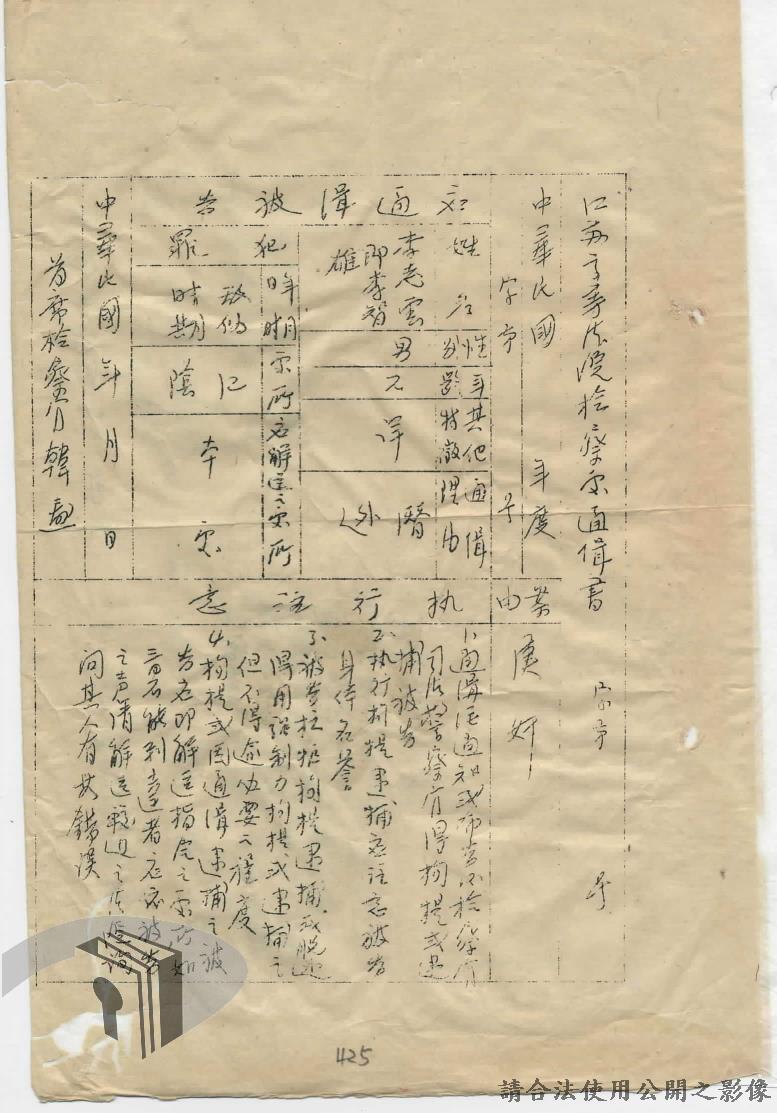 江蘇高等法院檢察處通緝書 字第 號
中華民國 年度
字第 號
案由 漢奸
應通緝被告
姓名 李志雲即李智雄
性別 男
年齡 不
其他特徵 詳
通緝理由 潛逃
犯罪
日年時月 敌伪時期
處所 江陰
應解送之處所 本處
執行注意
1、通緝經通知或佈告後檢察官
司法警察官得拘提或逮
捕被告
2、執行拘提逮捕應注意被告
身体名譽
3、被告抗拒拘提逮捕或脱逃
得用強制力拘提或逮捕之
但不得逾必要之程度
4、拘提或因通緝逮捕之被
告应即解送指定之處所如
三日不能到達者应依被告
之声請解送較近之法院詢
問其人有無錯誤
中華民國 年 月 日
首席檢察官韓燾
425
請合法使用公開之影像